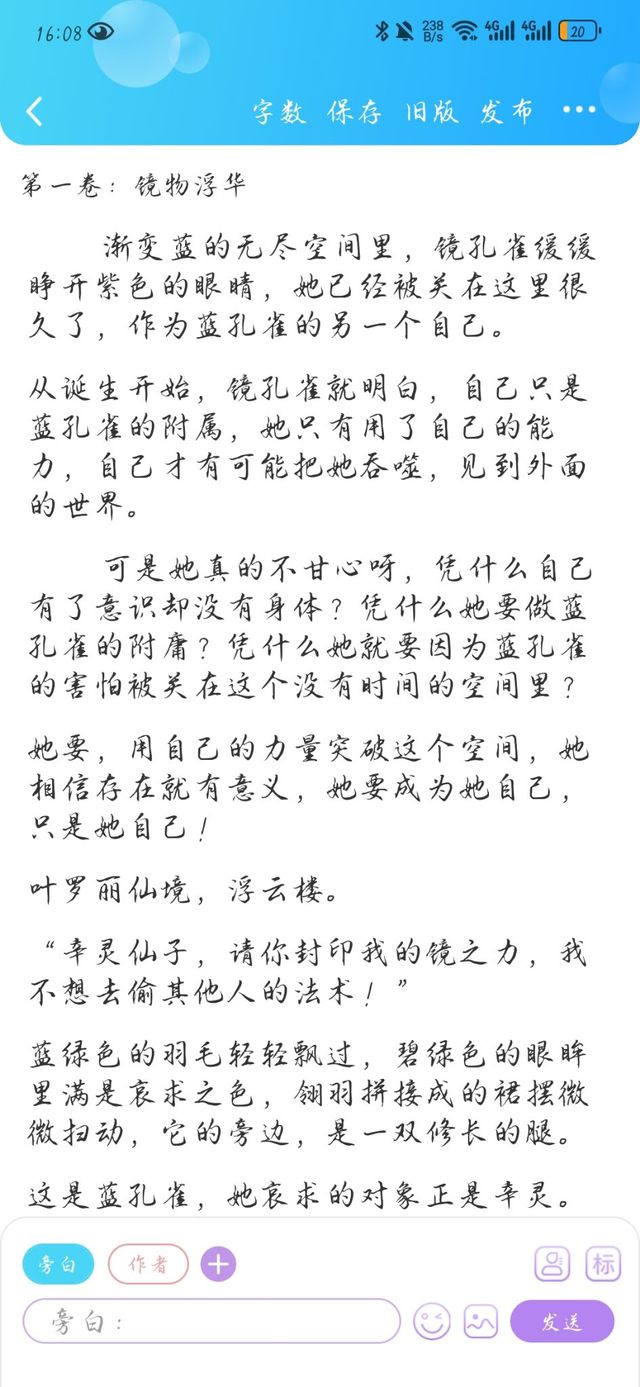 16:08 238 B/s 4G 4G 20
字数 保存 旧版 发布
第一卷：镜物浮华
渐变蓝的无尽空间里，镜孔雀缓缓
睁开紫色的眼睛，她已经被关在这里很
久了，作为蓝孔雀的另一个自己。
从诞生开始，镜孔雀就明白，自己只是
蓝孔雀的附属，她只有用了自己的能
力，自己才有可能把她吞噬，见到外面
的世界。
可是她真的不甘心呀，凭什么自己
有了意识却没有身体？凭什么她要做蓝
孔雀的附庸？凭什么她就要因为蓝孔雀
的害怕被关在这个没有时间的空间里？
她要，用自己的力量突破这个空间，她
相信存在就有意义，她要成为她自己，
只是她自己！
叶罗丽仙境，浮云楼。
“辛灵仙子，请你封印我的镜之力，我
不想去偷其他人的法术！”
蓝绿色的羽毛轻轻飘过，碧绿色的眼眸
里满是哀求之色，翎羽拼接成的裙摆微
微扫动，它的旁边，是一双修长的腿。
这是蓝孔雀，她哀求的对象正是辛灵。
旁白 作者 标
旁白： 发送